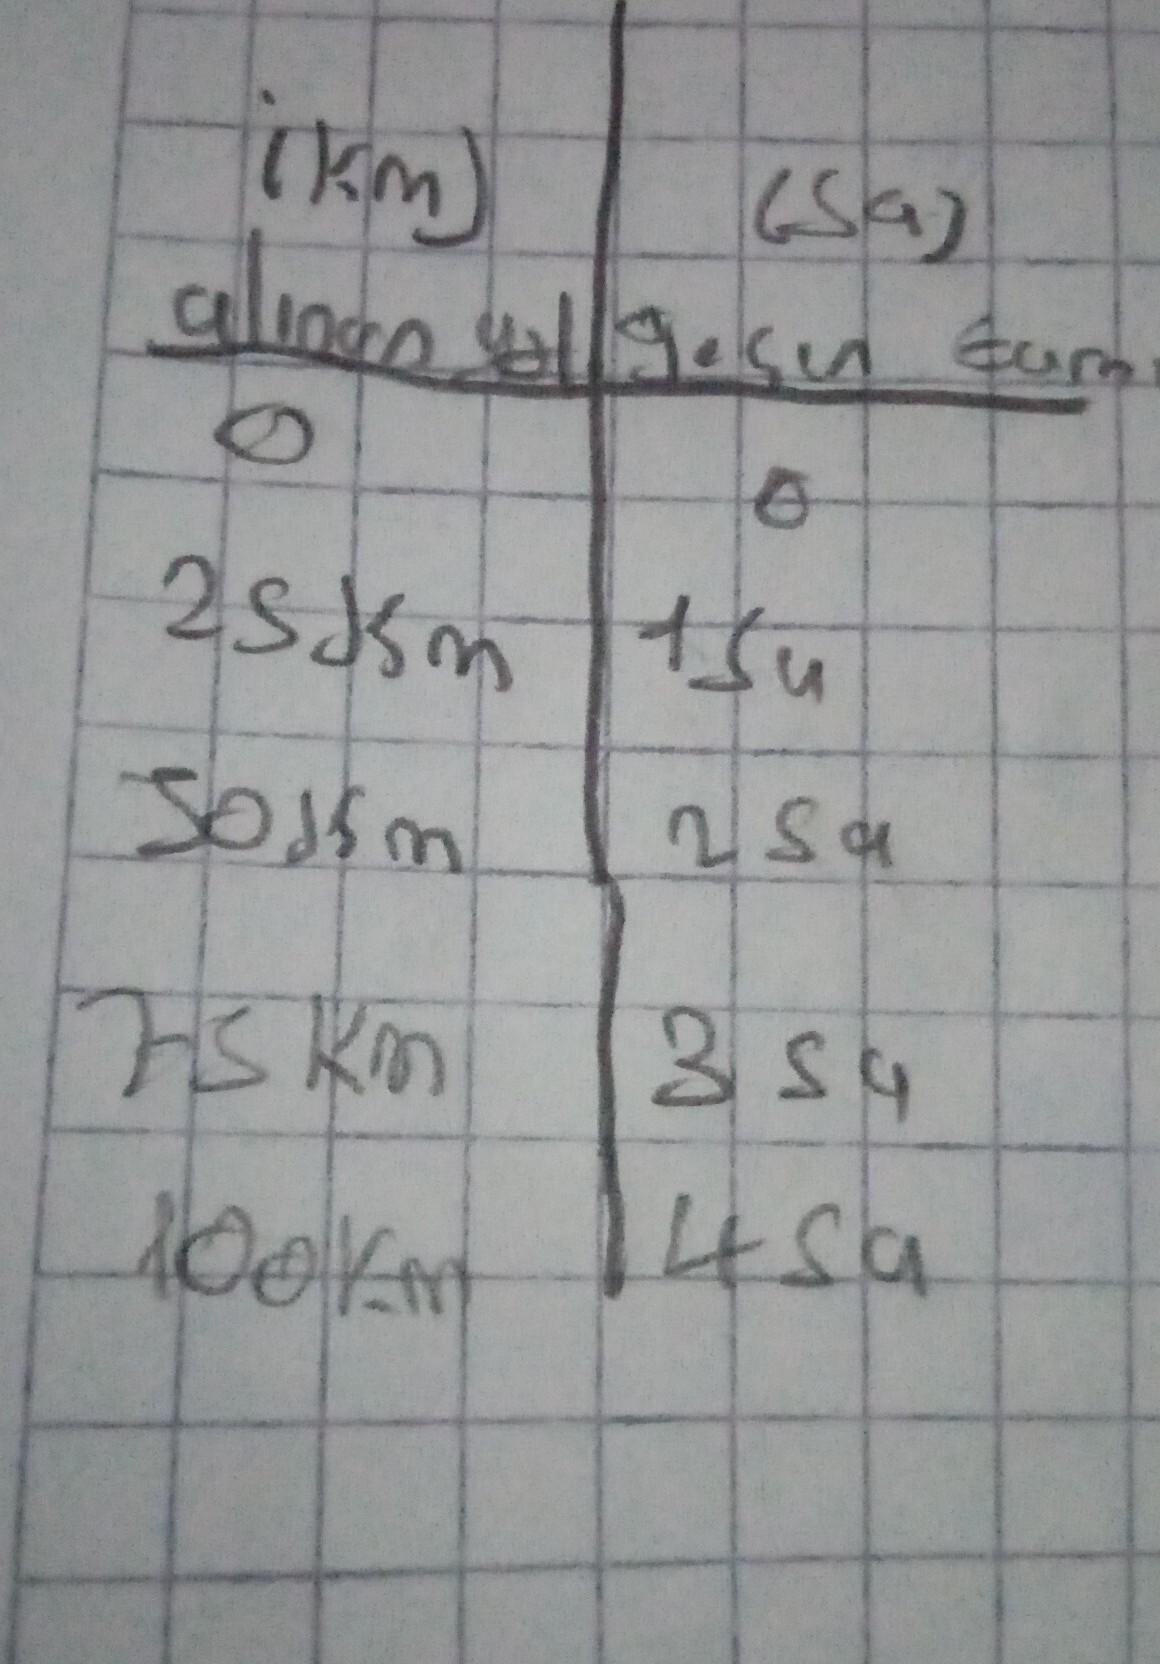 (km) (sa)
alınan yol geçen
0 0
25 km 1 sa
50 km 2 sa
75 km 3 sa
100 km 4 sa